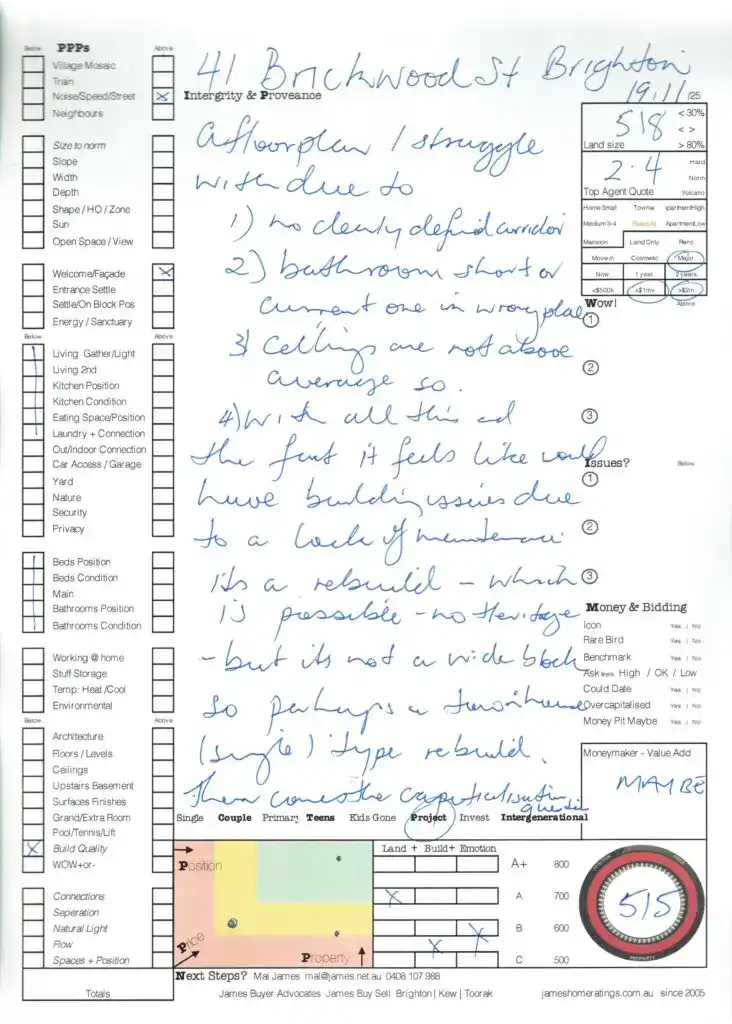 Below PPPs Above
Village Mosaic
Train
Noise/Speed/Street X
Neighbours
Size to norm
Slope
Width
Depth
Shape / HO / Zone
Sun
Open Space / View
Welcome/Façade X
Entrance Settle
Settle/On Block Pos
Energy / Sanctuary
Below Above
Living Gather/Light
Living 2nd
Kitchen Position
Kitchen Condition
Eating Space/Position
Laundry + Connection
Out/Indoor Connection
Car Access / Garage
Yard
Nature
Security
Privacy
Beds Position
Beds Condition
Main
Bathrooms Position
Bathrooms Condition
Working @ home
Stuff Storage
Temp: Heat /Cool
Environmental
Below Above
Architecture
Floors / Levels
Ceilings
Upstairs Basement
Surfaces Finishes
Grand/Extra Room
Pool/Tennis/Lift
X Build Quality
WOW+or-
Connections
Seperation
Natural Light
Flow
Spaces + Position
Totals
41 Brickwood St Brighton
19.11 /25
Intergrity & Proveance
a floorplan I struggle
with due to
1) no clearly defined corridor
2) bathroom short or
current one in wrong place
3) Ceilings are not above
average so.
4) With all this ad
the fact it feels like would
have building issues due
to a lack of maintenance
its a rebuild - which
is possible - no Heritage
- but its not a wide block
so perhaps a townhouse
(single) type rebuild.
Then comes the capitalisation
question
518
Land size
< 30%
< >
> 80%
2.4
Top Agent Quote
Hard
Norm
Volcano
Home Small Townie ApartmentHigh
Medium 3-4 ApartmentLow
Mansion Land Only Reno
Move-in Cosmetic Major
Now 1 year 2 years
<$500k <$1m> >$2m
Wow! Above
1
2
3
Issues? Below
1
2
3
Money & Bidding
Icon Yes / No
Rare Bird Yes / No
Benchmark Yes / No
Ask High / OK / Low
Could Date Yes / No
Overcapitalised Yes / No
Money Pit Maybe Yes / No
Moneymaker - Value Add
MAYBE
Single Couple Primary Teens Kids Gone Project Invest Intergenerational
Position
Price
Property
Land + Build+ Emotion
A+ 800
X A 700
X B 600
X C 500
515
PROPERTY
Next Steps? Mal James mal@james.net.au 0408 107 988
James Buyer Advocates James Buy Sell Brighton | Kew | Toorak jameshomeratings.com.au since 2005